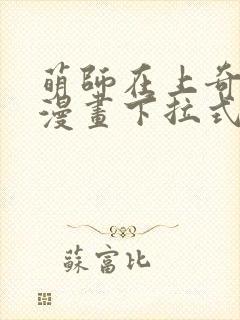 萌師在上奇
漫畫下拉式
蘇富比